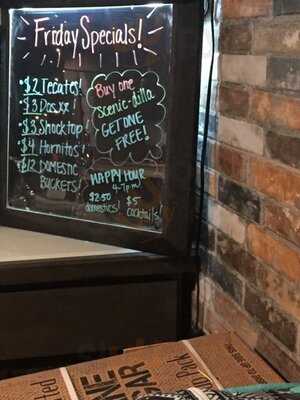 Friday Specials!
• $2 Tecates!
• $3 Dos xx!
• $3 Shocktop!
• $4 Hornitos!
• $12 DOMESTIC
BUCKETS!
Buy one
scenic-dilla
GET ONE
FREE!
HAPPY HOUR
4-7pm!
$2.50
domestics!
$5
cocktails!